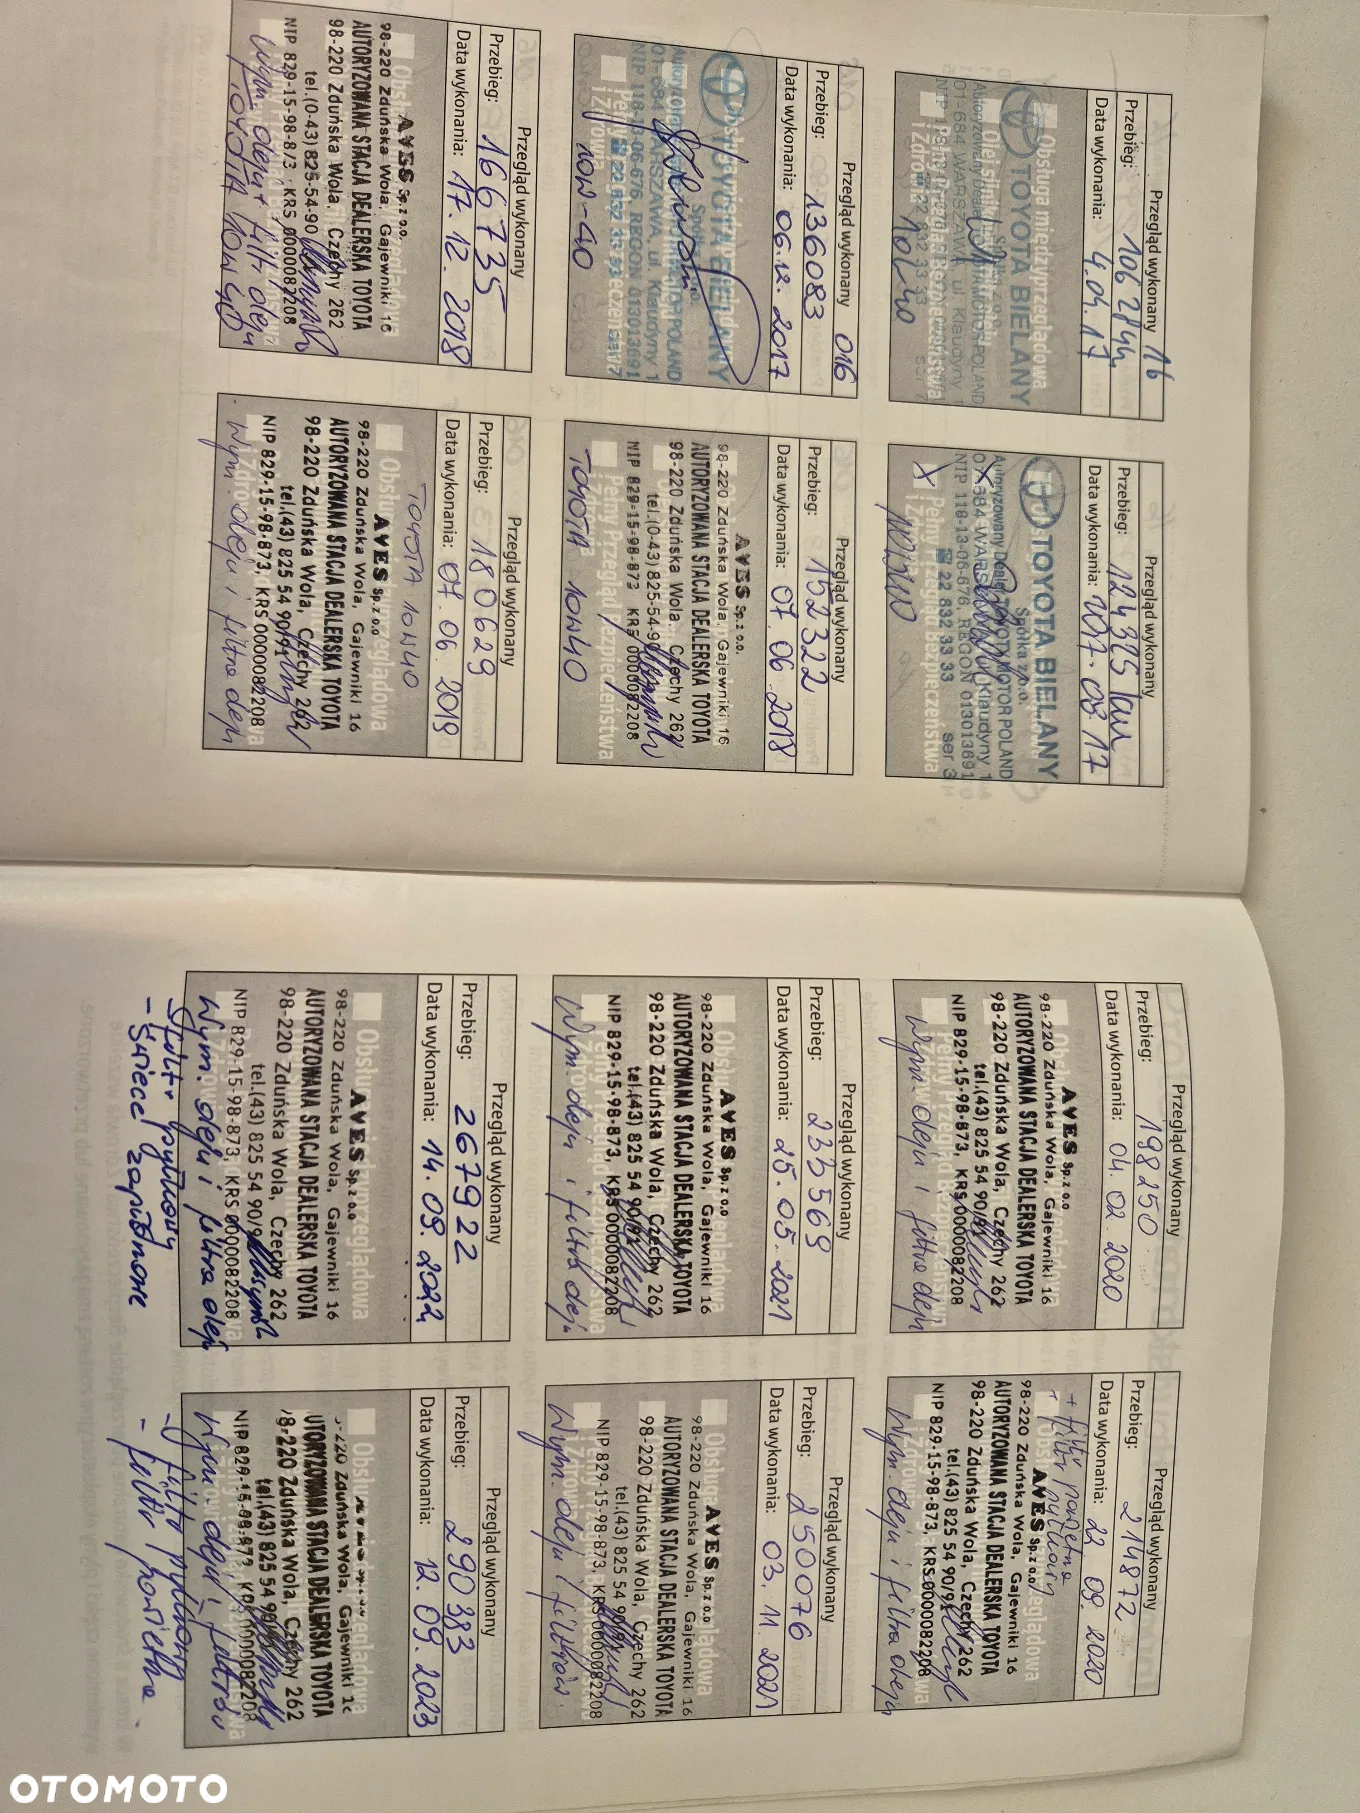 Przegląd wykonany 16
Przebieg: 106244
Data wykonania: 4.04.17
Obsługa międzyprzeglądowa
TOYOTA BIELANY
Spółka z o.o.
01-684 WARSZAWA, ul. Klaudyny 1
10W40
Przegląd wykonany
Przebieg: 124395 km
Data wykonania: 2017.08.17
TOYOTA BIELANY
Spółka z o.o.
Autoryzowany Dealer TOYOTA MOTOR POLAND
01-684 WARSZAWA, ul. Klaudyny 1
NIP 118-13-06-676, REGON 013013691
22 832 33 33
X Pełny Przegląd Bezpieczeństwa
i Zdrowia
10W40
Przegląd wykonany 016
Przebieg: 136083
Data wykonania: 06.12.2017
TOYOTA BIELANY
01-684 WARSZAWA, ul. Klaudyny 1
NIP 118-13-06-676, REGON 013013691
22 832 33 33
i Zdrowia
10W-40
Przegląd wykonany
Przebieg: 152322
Data wykonania: 07.06.2018
AVES Sp. z o.o.
98-220 Zduńska Wola, Gajewniki 16
AUTORYZOWANA STACJA DEALERSKA TOYOTA
98-220 Zduńska Wola, Czechy 262
tel.(0-43) 825-54-90
NIP 829-15-98-873 KRS 0000082208
Pełny Przegląd Bezpieczeństwa
TOYOTA 10W40
Przegląd wykonany
Przebieg: 166735
Data wykonania: 17.12.2018
AVES Sp. z o.o.
98-220 Zduńska Wola, Gajewniki 16
AUTORYZOWANA STACJA DEALERSKA TOYOTA
98-220 Zduńska Wola, Czechy 262
tel.(0-43) 825-54-90
NIP 829-15-98-873 KRS 0000082208
Wym. oleju + filtr oleju
TOYOTA 10W40
Przegląd wykonany
Przebieg: 180629
Data wykonania: 07.06.2019
TOYOTA 10W40
AVES Sp. z o.o
98-220 Zduńska Wola, Gajewniki 16
AUTORYZOWANA STACJA DEALERSKA TOYOTA
98-220 Zduńska Wola, Czechy 262
tel.(43) 825 54 90/91
NIP 829-15-98-873, KRS 0000082208
Wym. oleju i filtra oleju
Przegląd wykonany
Przebieg: 198250
Data wykonania: 04.02.2020
AVES Sp. z o.o
98-220 Zduńska Wola, Gajewniki 16
AUTORYZOWANA STACJA DEALERSKA TOYOTA
98-220 Zduńska Wola, Czechy 262
tel.(43) 825 54 90/91
NIP 829-15-98-873, KRS 0000082208
Wym. oleju i filtra oleju
Przegląd wykonany
Przebieg: 214872
Data wykonania: 22.09.2020
+ filtr powietrza
+ filtr pyłkowy
AVES Sp. z o.o
98-220 Zduńska Wola, Gajewniki 16
AUTORYZOWANA STACJA DEALERSKA TOYOTA
98-220 Zduńska Wola, Czechy 262
tel.(43) 825 54 90/91
NIP 829-15-98-873, KRS 0000082208
Wym. oleju i filtra oleju
Przegląd wykonany
Przebieg: 233569
Data wykonania: 25.05.2021
AVES Sp. z o.o
98-220 Zduńska Wola, Gajewniki 16
AUTORYZOWANA STACJA DEALERSKA TOYOTA
98-220 Zduńska Wola, Czechy 262
tel.(43) 825 54 90/91
NIP 829-15-98-873, KRS 0000082208
Wym. oleju i filtra oleju
Przegląd wykonany
Przebieg: 250076
Data wykonania: 03.11.2021
AVES Sp. z o.o
98-220 Zduńska Wola, Gajewniki 16
AUTORYZOWANA STACJA DEALERSKA TOYOTA
98-220 Zduńska Wola, Czechy 262
tel.(43) 825 54 90/91
NIP 829-15-98-873, KRS 0000082208
Wym. oleju i filtrów.
Przegląd wykonany
Przebieg: 267922
Data wykonania: 14.09.2022
AVES Sp. z o.o
98-220 Zduńska Wola, Gajewniki 16
AUTORYZOWANA STACJA DEALERSKA TOYOTA
98-220 Zduńska Wola, Czechy 262
tel.(43) 825 54 90/9
NIP 829-15-98-873, KRS 0000082208
Wym. oleju i filtra oleju
- filtr pyłkowy
- świece zapłonowe
Przegląd wykonany
Przebieg: 290383
Data wykonania: 12.09.2023
-220 Zduńska Wola, Gajewniki 16
UTORYZOWANA STACJA DEALERSKA TOYOTA
98-220 Zduńska Wola, Czechy 262
tel.(43) 825 54 90
NIP 829-15-98-873, KRS 0000082208
- filtr pyłkowy
- filtr powietrza
OTOMOTO